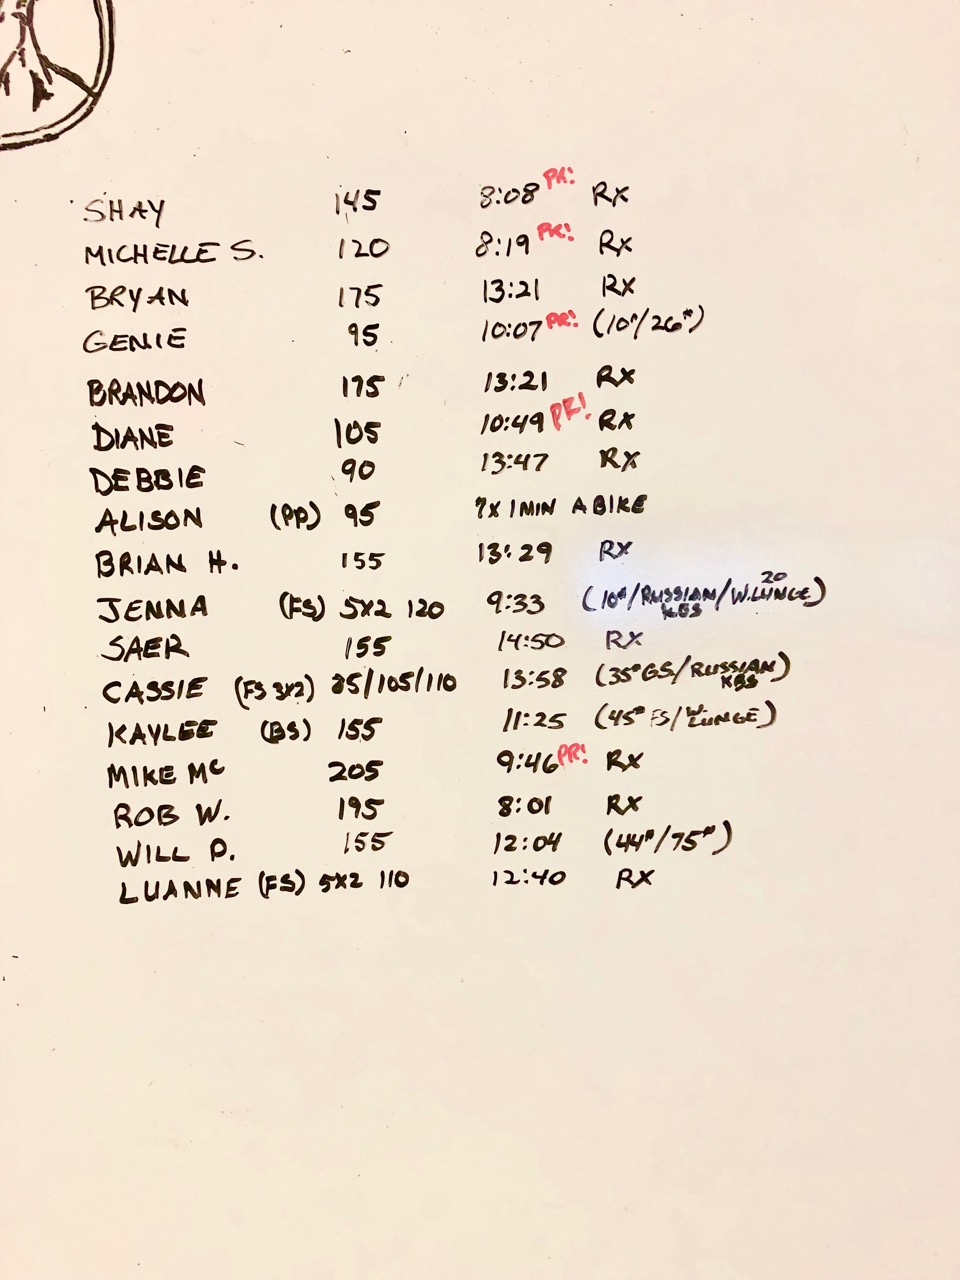 SHAY 145 8:08 PR! RX
MICHELLE S. 120 8:19 PR! RX
BRYAN 175 13:21 RX
GENIE 95 10:07 PR! (10#/26#)
BRANDON 175 13:21 RX
DIANE 105 10:49 PR! RX
DEBBIE 90 13:47 RX
ALISON (PP) 95 7X 1MIN A BIKE
BRIAN H. 155 13:29 RX
JENNA (FS) 5X2 120 9:33 (10#/RUSSIAN KBS/W.LUNGE 20)
SAER 155 14:50 RX
CASSIE (FS 3X2) 85/105/110 13:58 (35# GS/RUSSIAN KBS)
KAYLEE (BS) 155 11:25 (45# FS/W. LUNGE)
MIKE MC 205 9:46 PR! RX
ROB W. 195 8:01 RX
WILL D. 155 12:04 (44#/75#)
LUANNE (FS) 5X2 110 12:40 RX